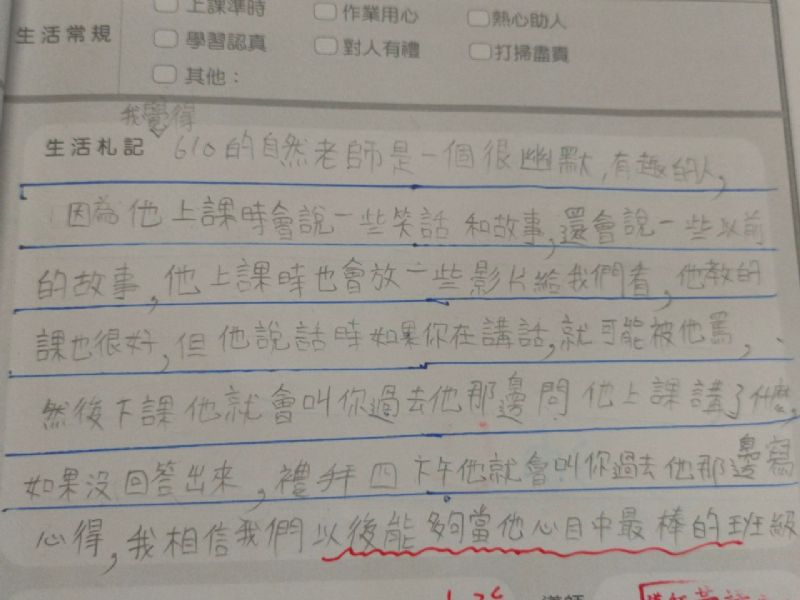 上課準時 作業用心 熱心助人
生活常規 學習認真 對人有禮 打掃盡責
其他：
我覺得
生活札記 610的自然老師是一個很幽默,有趣的人,
因為他上課時會說一些笑話和故事,還會說一些以前
的故事,他上課時也會放一些影片給我們看,他教的
課也很好,但他說話時如果你在講話,就可能被他罵,
然後下課他就會叫你過去他那邊問他上課講了什麼,
如果沒回答出來,禮拜四下午他就會叫你過去他那邊寫
心得,我相信我們以後能夠當他心目中最棒的班級
導師